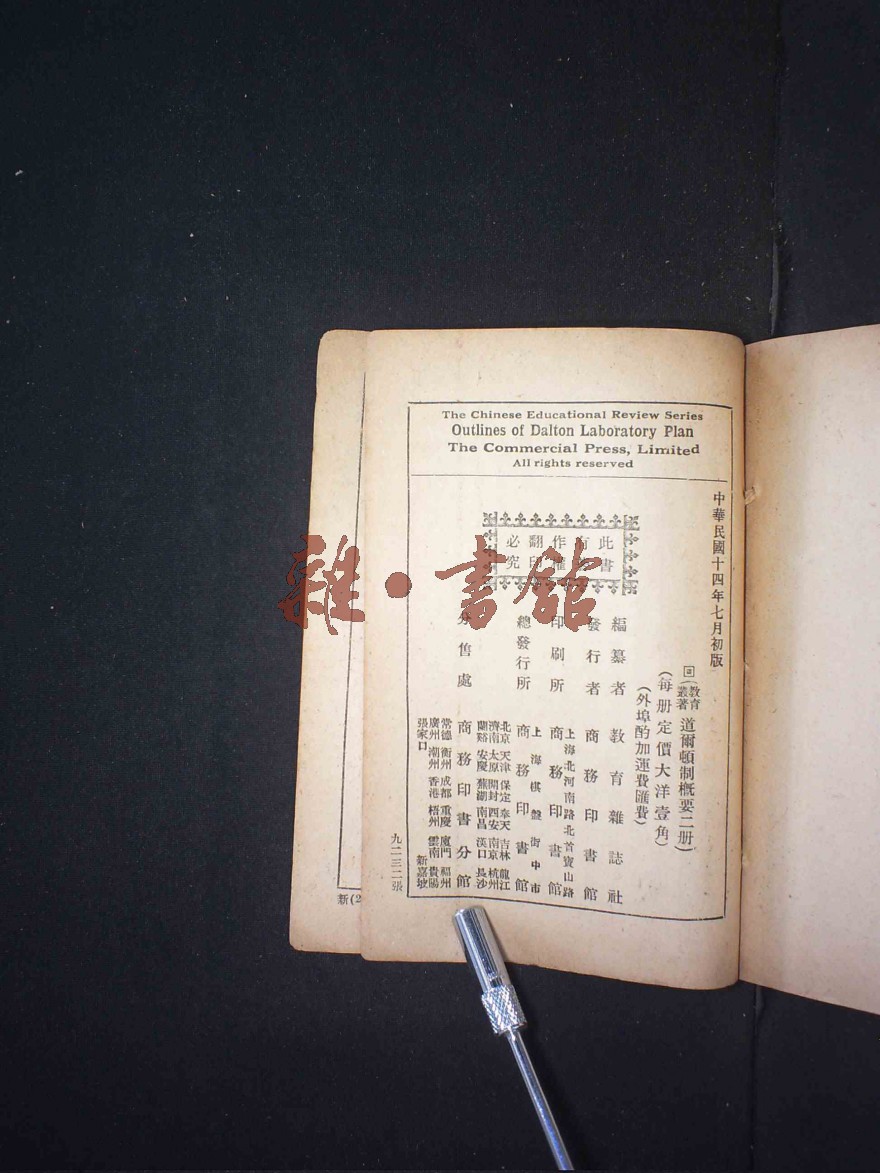 The Chinese Educational Review Series
Outlines of Dalton Laboratory Plan
The Commercial Press, Limited
All rights reserved
中華民國十四年七月初版
(教育叢著 道爾頓制概要二册)
(每册定價大洋壹角)
(外埠酌加運費匯費)
此書
有著
作權
翻印
必究
編纂者 教育雜誌社
發行者 商務印書館
上海北河南路北首寶山路
印刷所 商務印書館
上海棋盤街中市
總發行所 商務印書館
北京 天津 保定 奉天 吉林 龍江
濟南 太原 開封 西安 南京 杭州
蘭谿 安慶 蕪湖 南昌 漢口 長沙
分售處 商務印書分館
常德 衡州 成都 重慶 廈門 福州
廣州 潮州 香港 梧州 雲南 貴陽
張家口 新嘉坡
九二三二張
新(2
雜·書館